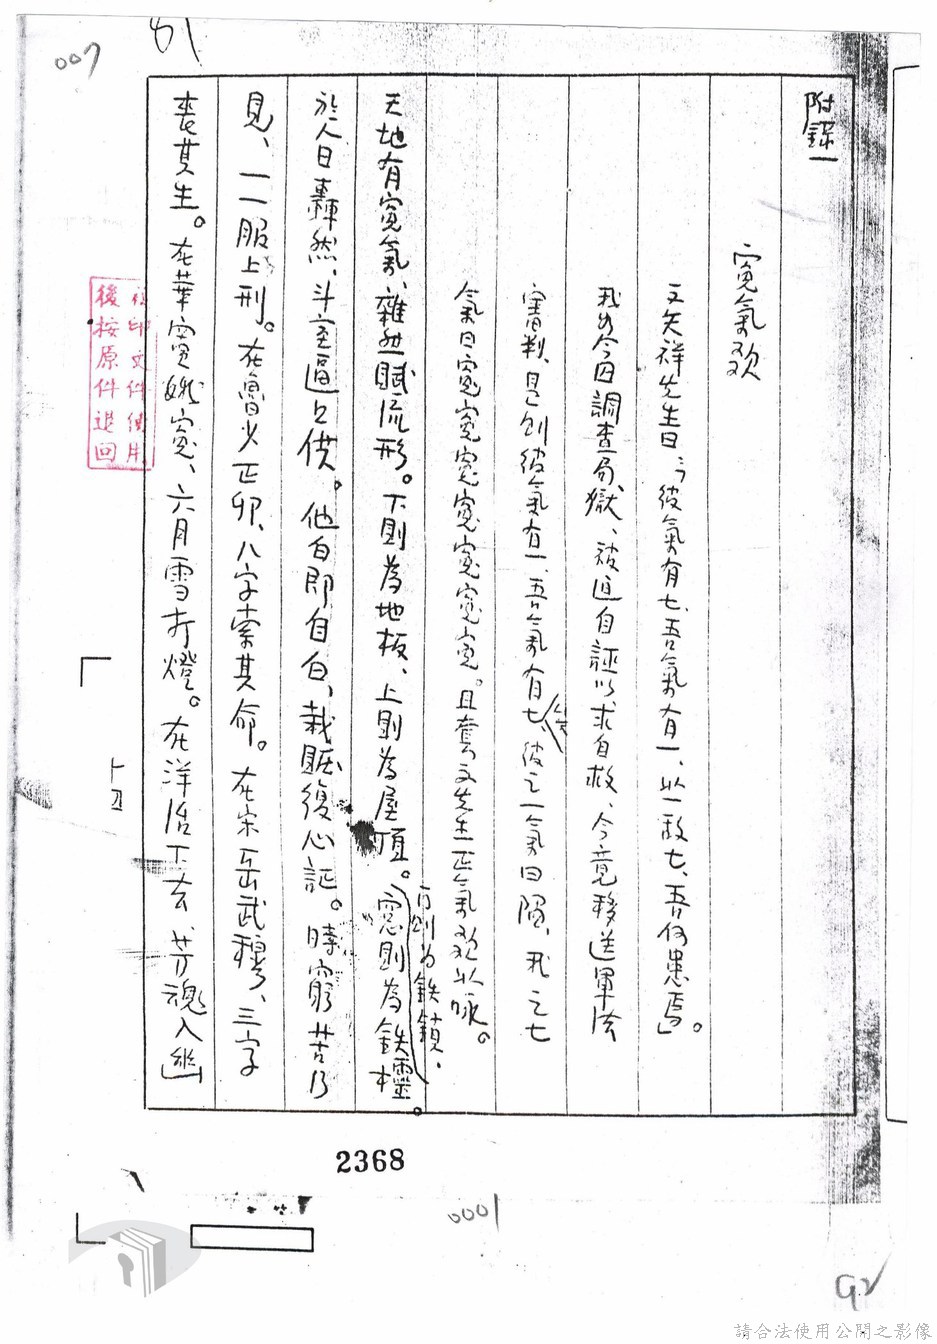 007
81
附錄一
寃氣歌
文天祥先生曰:「彼氣有七、吾氣有一、以一敵七、吾何患焉」。
我於今因調查局獄、被迫自誣以求自救、今竟移送軍法
審判、是則彼氣有一、吾氣有七、彼之一氣曰陰、我之七
氣曰寃寃寃寃寃寃寃。且套文先生正氣歌以咏。
天地有寃氣、雜然賦流形。下則為地板、上則為屋頂。窓則為鉄欞。
門則為鉄鎖、
於人曰轟然、斗室逼口供。他白即自白、栽贓復心証。時窮苦乃
見、一一服上刑。在魯少正卯、八字索其命。在宋岳武穆、三字
喪其生。在華竇娥寃、六月雪打燈。在洋
下去、芳魂入幽
後按原件退回
2368
0001
G2
請合法使用公開之影像